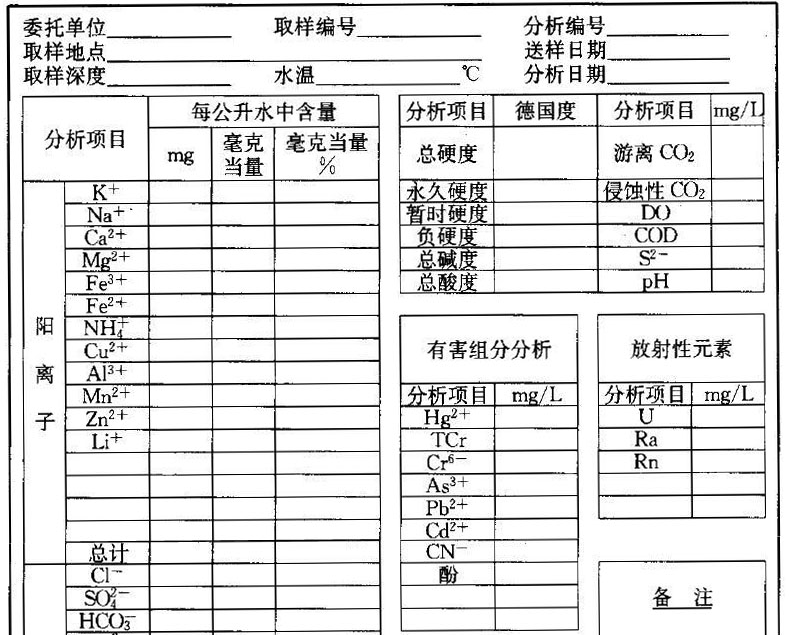 委托单位 取样编号 分析编号
取样地点 送样日期
取样深度 水温 ℃ 分析日期
分析项目 每公升水中含量
mg 毫克当量 毫克当量%
阳离子
K⁺
Na⁺
Ca²⁺
Mg²⁺
Fe³⁺
Fe²⁺
NH₄⁺
Cu²⁺
Al³⁺
Mn²⁺
Zn²⁺
Li⁺
总计
Cl⁻
SO₄²⁻
HCO₃⁻
分析项目 德国度 分析项目 mg/L
总硬度 游离CO₂
永久硬度 侵蚀性CO₂
暂时硬度 DO
负硬度 COD
总碱度 S²⁻
总酸度 pH
有害组分分析
分析项目 mg/L
Hg²⁺
TCr
Cr⁶⁻
As³⁺
Pb²⁺
Cd²⁺
CN⁻
酚
放射性元素
分析项目 mg/L
U
Ra
Rn
备 注